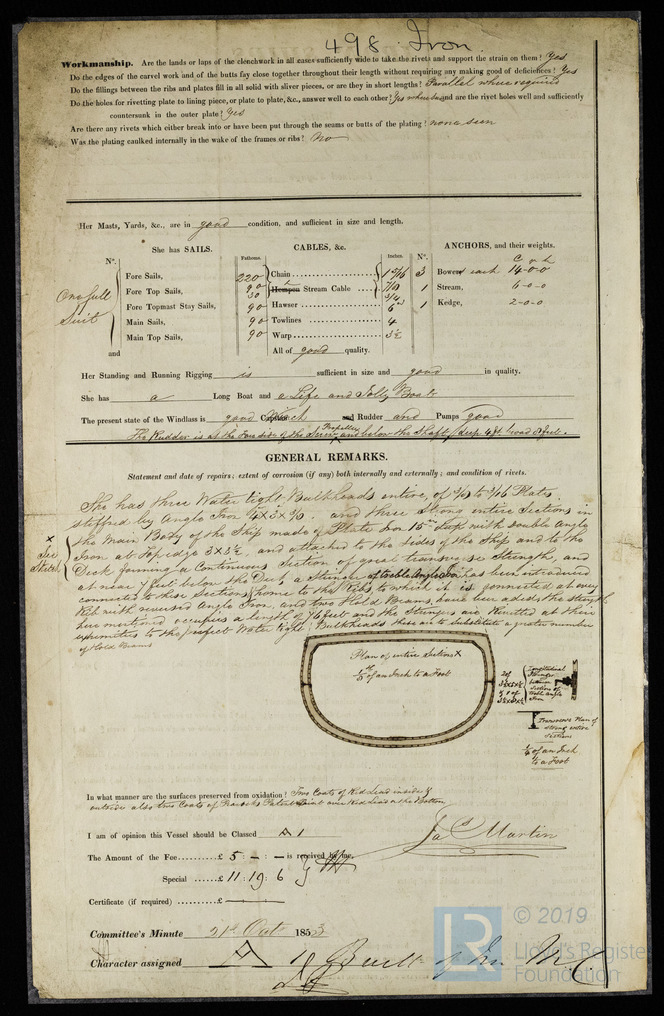 498 Iron
Workmanship. Are the lands or laps of the clenchwork in all cases sufficiently wide to take the rivets and support the strain on them? Yes
Do the edges of the carvel work and of the butts fay close together throughout their length without requiring any making good of deficiences? Yes
Do the fillings between the ribs and plates fill in all solid with sliver pieces, or are they in short lengths? Parallel where required
Do the holes for rivetting plate to lining piece, or plate to plate, &c., answer well to each other? Yes where seen and are the rivet holes well and sufficiently
countersunk in the outer plate? Yes
Are there any rivets which either break into or have been put through the seams or butts of the plating? none seen
Was the plating caulked internally in the wake of the frames or ribs? No
Her Masts, Yards, &c., are in good condition, and sufficient in size and length.
She has SAILS.
CABLES, &c.
ANCHORS, and their weights.
N°.
Fathoms.
Inches.
N°.
C q lb
One full Suit
Fore Sails,
Fore Top Sails,
Fore Topmast Stay Sails,
Main Sails,
Main Top Sails,
and
220 Chain 1 5/16
90 Hempen Stream Cable 7/8
50 3/4
90 Hawser 6
90 Towlines 4
90 Warp 3½
All of good quality.
3 Bowers each 14-0-0
1 Stream, 6-0-0
1 Kedge, 2-0-0
Her Standing and Running Rigging is sufficient in size and good in quality.
She has a Long Boat and a Life and Jolly Boats
The present state of the Windlass is good Capstan Winch and Rudder and Pumps good
The Rudder is at the Fore side of the Screw Propeller and below the Shaft, deep 4 ft broad 3 feet.
GENERAL REMARKS.
Statement and date of repairs; extent of corrosion (if any) both internally and externally; and condition of rivets.
She has three Water tight Bulkheads entire, of 3/16 Plates
stiffned by Angle Iron and three Strong entire Sections in
the Main Body of the Ship made of Plate Iron 15 in Deep with double Angle
Iron at Top edge 3x3½, and attached to the sides of the Ship and to the
Deck forming a Continuous Section of great transverse Strength, and
at near 7 feet below the Deck a Stringer of double Angle Iron has been introduced
connected to these sections, & home to the Ribs, to which it is connected at every
Rib with reversed Angle Iron, and two Hold Beams have been added, the strength
here mentioned occupies a length of 76 feet and the Stringers are Rivetted at their
extremities to the perfect Water tight Bulkheads these are to Substitute a greater number
of Hold Beams
x See Sketch
Plan of entire Sections x
of an Inch to a Foot
Longitudinal Stringer between Sections of double angle Iron
Transverse Plan of strong entire Sections
¼ of an Inch to a Foot
In what manner are the surfaces preserved from oxidation? Two Coats of Red Lead inside &
outside also two Coats of Patent Paint over Red Lead on the Bottom
I am of opinion this Vessel should be Classed A 1
Jas Martin
The Amount of the Fee £ 5 : - : - is received by me,
Special £ 11 : 19 : 6
Certificate (if required) £
Committee's Minute 21st Oct 1853
Character assigned A 1
Built of Iron
LR
© 2019
Lloyd's Register
Foundation